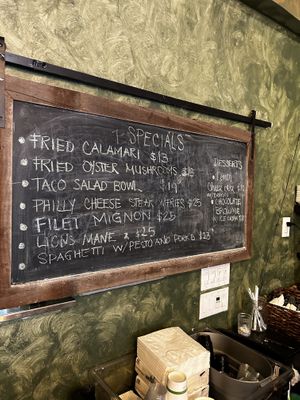 SPECIALS
FRIED CALAMARI $13
FRIED OYSTER MUSHROOMS $13
TACO SALAD BOWL $19
PHILLY CHEESE STEAK W/FRIES $25
FILET MIGNON $25
LIONS MANE $25
SPAGHETTI W/PESTO AND $23
DESSERTS
CHOCOLATE
BROWNIE
W/ICE CREAM